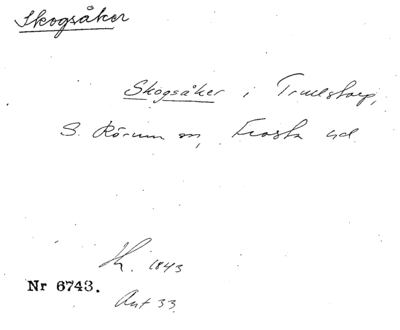 Skogsåker
Skogsåker i Truelstorp,
S. Rörum sn, Frosta hd
H. 1843
Nr 6743.
Ant 33